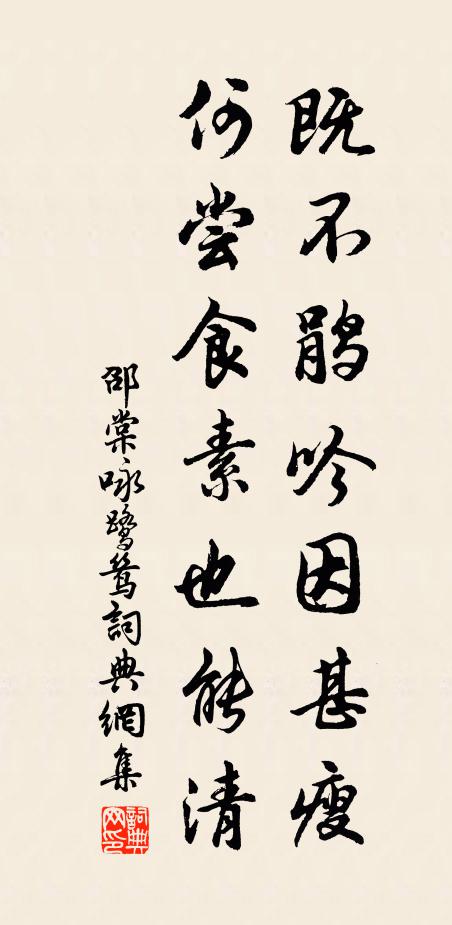 既不鹃吟因甚瘦
何尝食素也能清
邵棠咏鹭鸶詞典網集
詞典網印